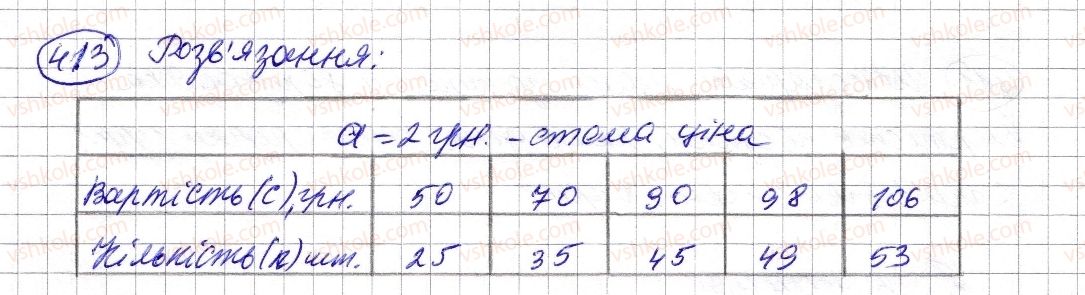 413 Розв'язання:
a = 2 грн. - стала ціна
Вартість (с), грн. 50 70 90 98 106
Кількість (n) шт. 25 35 45 49 53